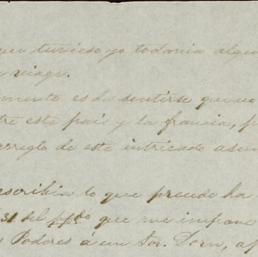 que tuviese yo todavia algun
viage.
mente es de sentirse que no
tre este pais y la francia, p
arreglo de este intricado asun
escribia lo que precede ha
31 del ppdo que me impone
Poderes á un Sor. Dorn, ap